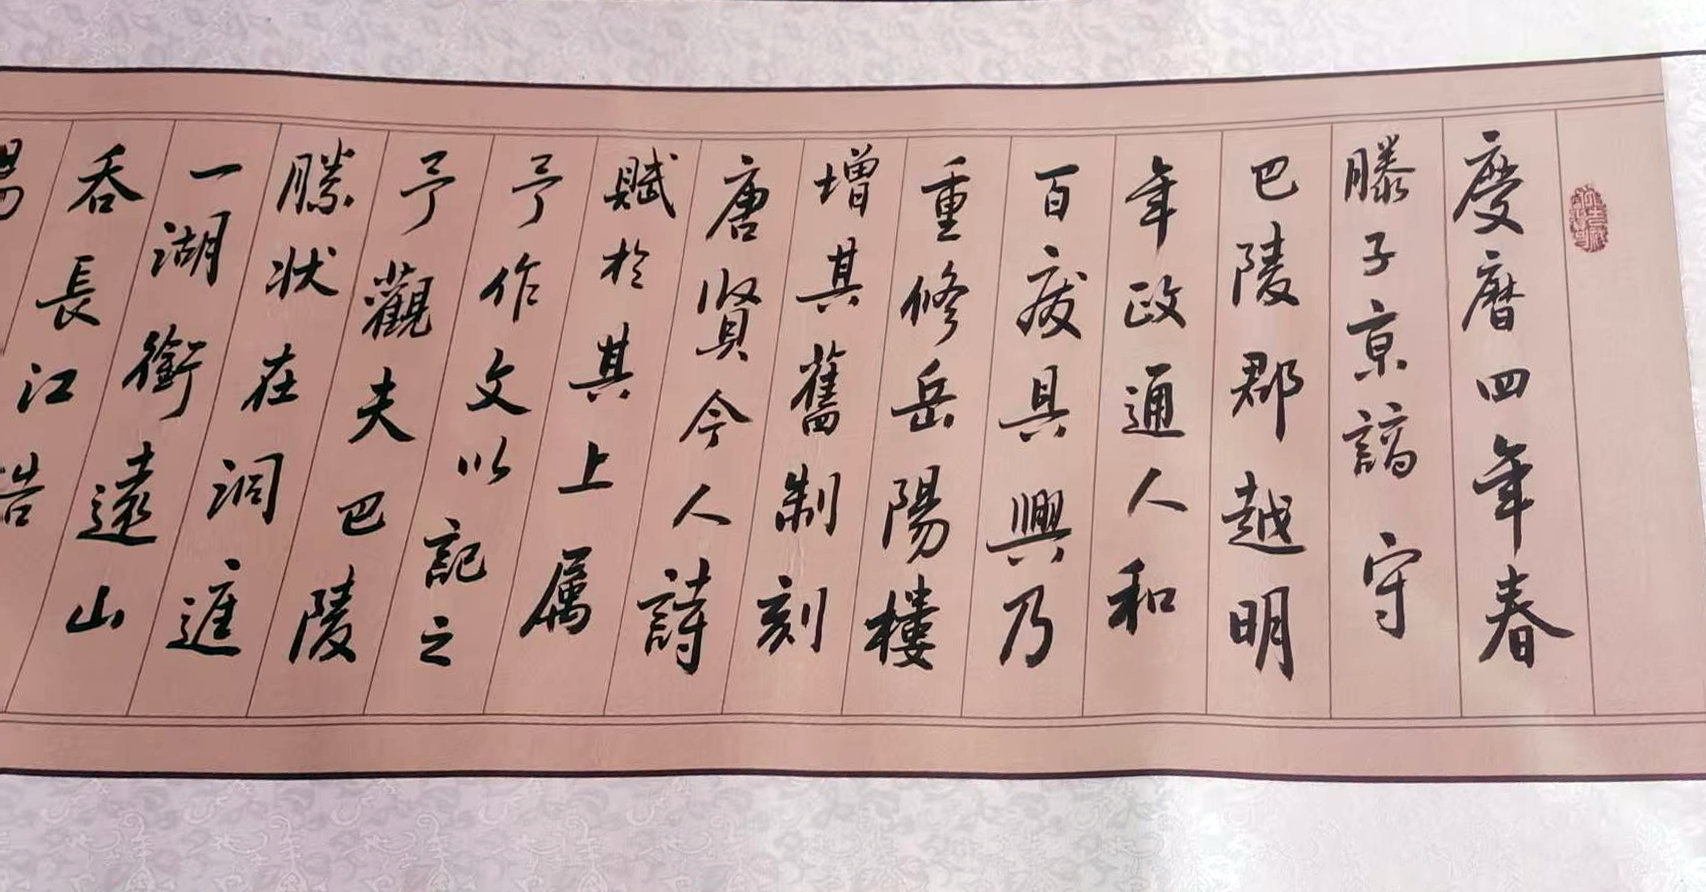 慶曆四年春
滕子京謫守
巴陵郡越明
年政通人和
百廢具興乃
重修岳陽樓
增其舊制刻
唐賢今人詩
賦於其上屬
予作文以記之
予觀夫巴陵
勝狀在洞庭
一湖銜遠山
吞長江浩